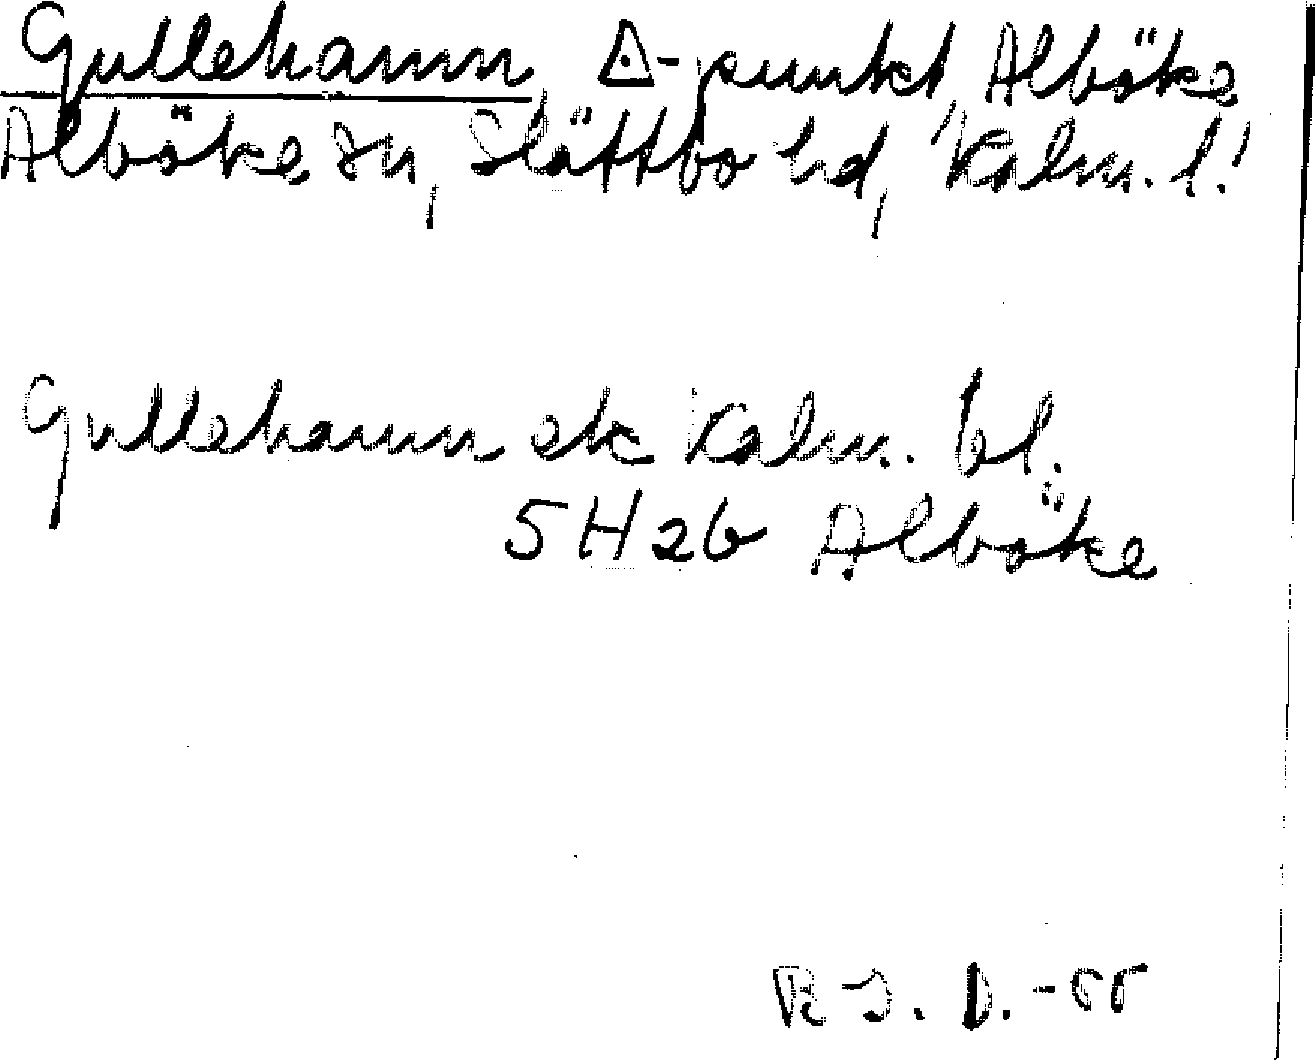 Gullehamn, ⟁-punkt, Alböke,
Alböke sn, Slättbo hd, Kalm. l.
Gullehamn ek Kalm. bl.
5H2b Alböke